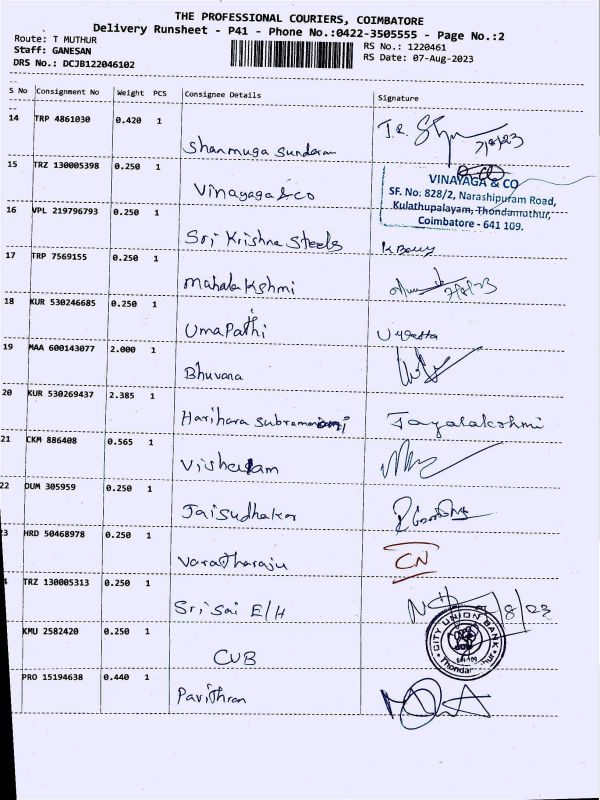 THE PROFESSIONAL COURIERS, COIMBATORE
Delivery Runsheet - P41 - Phone No.:0422-3505555 - Page No.:2
Route: T MUTHUR
Staff: GANESAN
DRS No.: DCJB122046102
RS No.: 1220461
RS Date: 07-Aug-2023
S No Consignment No Weight PCS Consignee Details Signature
14 TRP 4861030 0.420 1
Shanmuga Sundaram 7/8/23
15 TRZ 130005398 0.250 1
Vinayaga & co
VINAYAGA & CO
SF. No: 828/2, Narashipuram Road,
Kulathupalayam, Thondamuthur,
Coimbatore - 641 109.
16 VPL 219796793 0.250 1
Sri Krishna Steels
17 TRP 7569155 0.250 1
Mahalakshmi 7/8/23
18 KUR 530246685 0.250 1
Umapathi
19 MAA 600143077 2.000 1
Bhuvana
20 KUR 530269437 2.385 1
Harihara Jayalakshmi
21 CKM 886408 0.565 1
22 DUM 305959 0.250 1
Jaisudhakar
3 HRD 50468978 0.250 1
Varatharaju CN
TRZ 130005313 0.250 1
Sri Sai E/H /8/23
KMU 2582420 0.250 1
CUB
CITY UNION BANK
641-109
PRO 15194638 0.440 1
Pavithran